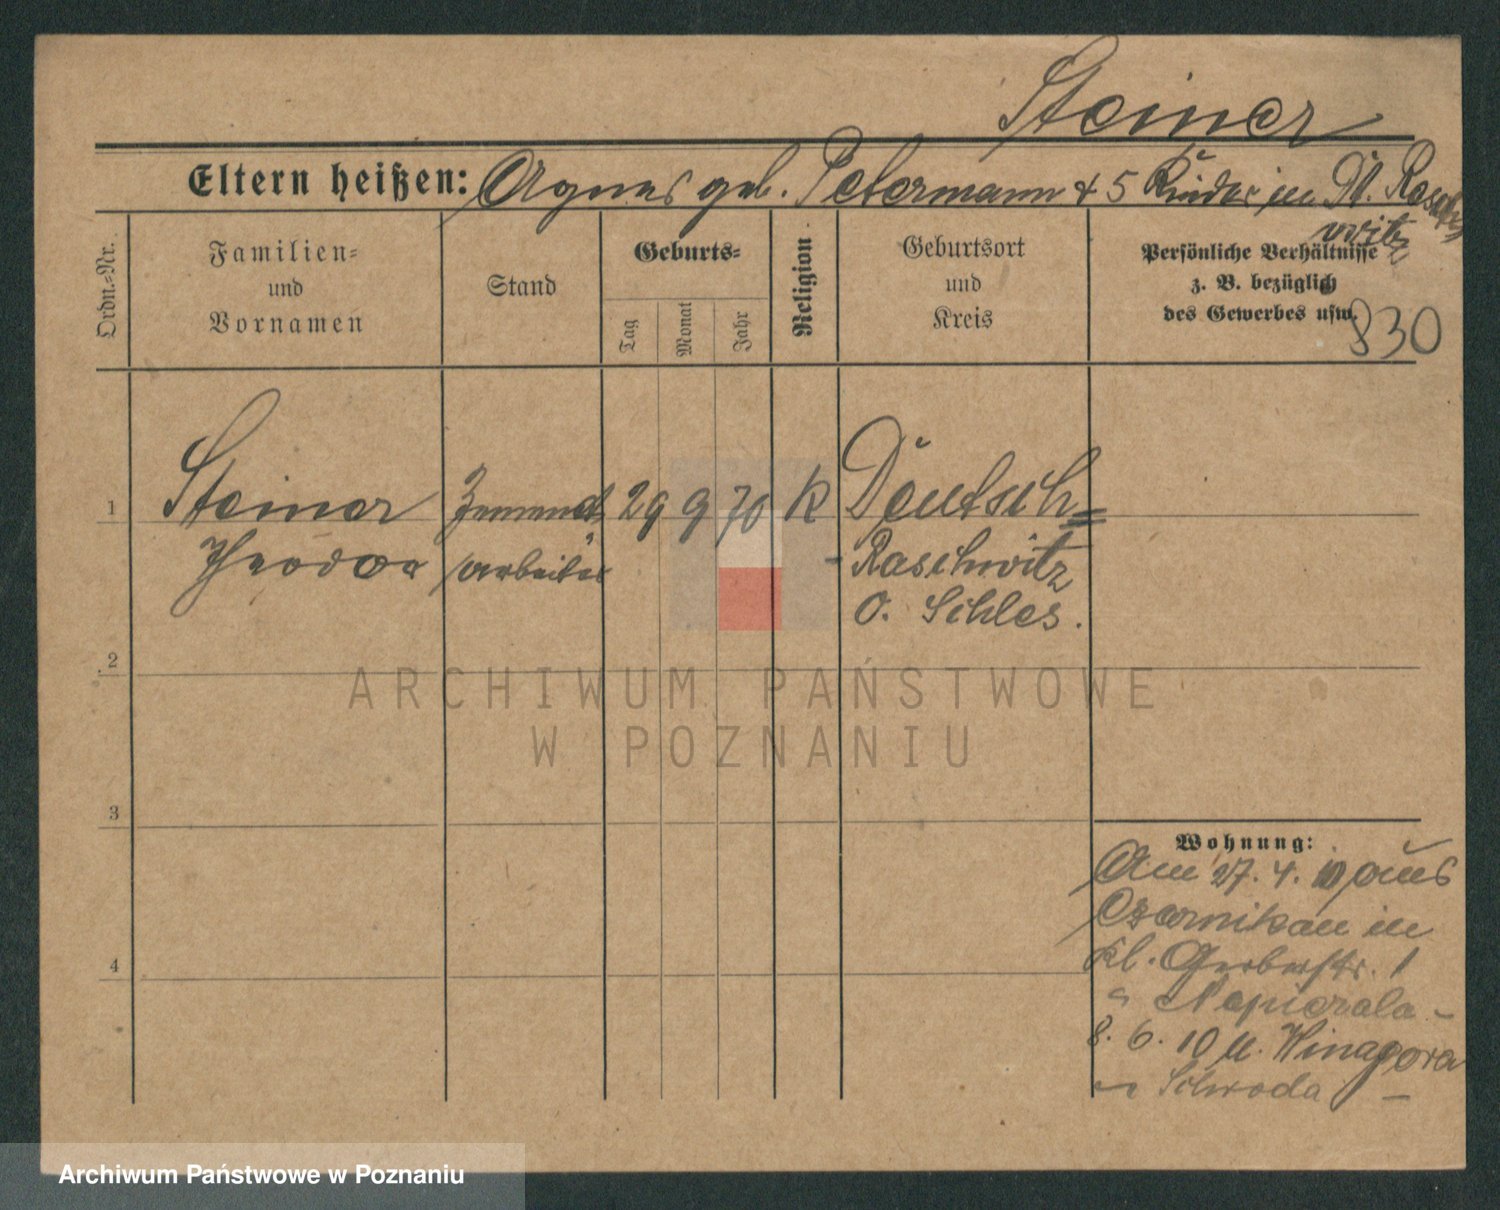 Steiner
Eltern heißen: Agnes geb. Petermann + 5 Kinder in Dt. Rasch
witz
Ordn.-Nr.
Familien-
und
Vornamen
Stand
Geburts-
Tag
Monat
Jahr
Religion
Geburtsort
und
Kreis
Persönliche Verhältnisse
z. B. bezüglich
des Gewerbes usw.
830
1
Steiner
Theodor
Zement
arbeiter
29 9 70 K
Deutsch=
-Raschwitz
O. Schles.
2
3
4
Wohnung:
Am 27. 4. 10 aus
Czarnikau in
Kl. Gerberstr. 1
Napierala -
8. 6. 10 n. Winagora
Schroda -
ARCHIWUM PAŃSTWOWE
W POZNANIU
Archiwum Państwowe w Poznaniu